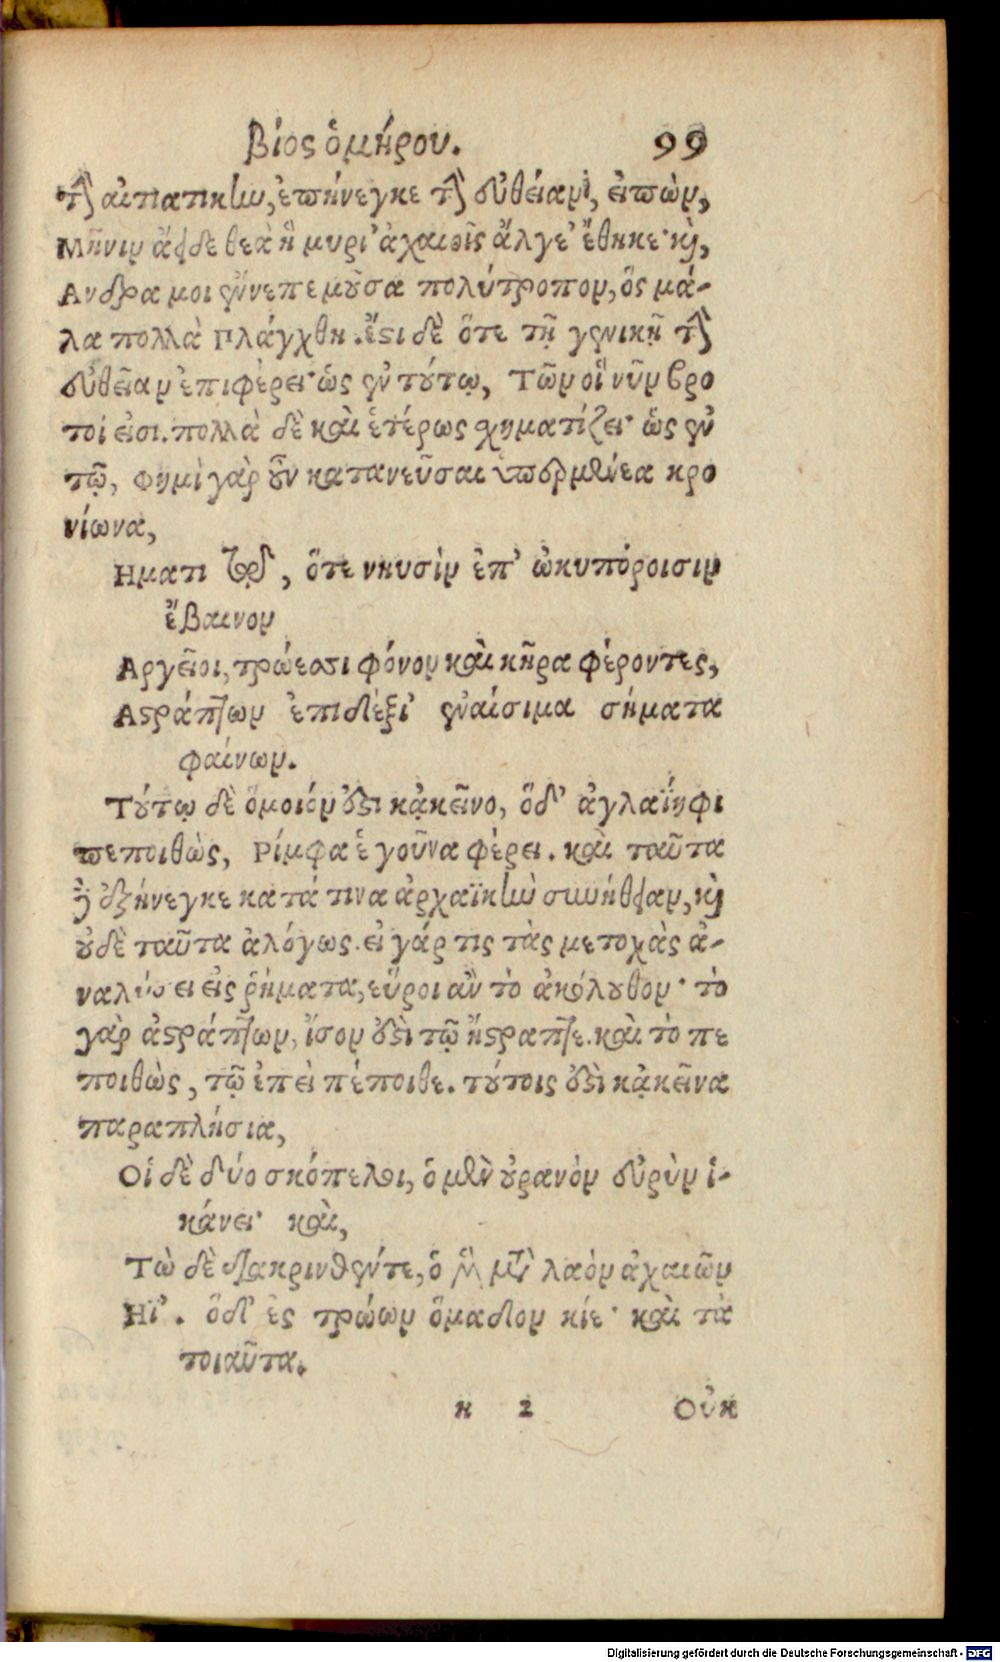 Βίος ὁμήρου. 99
τὴν αἰτιατικὴν, ἐπήνεγκε τὴν εὐθεῖαν, εἰπὼν,
Μῆνιν ἄειδε θεὰ ἣ μυρί' ἀχαιοῖς ἄλγε' ἔθηκε· καὶ,
Ανδρα μοι ἔννεπε μοῦσα πολύτροπον, ὃς μά-
λα πολλὰ Πλάγχθη. ἔστι δὲ ὅτε τῇ γενικῇ τὴν
εὐθεῖαν ἐπιφέρει· ὡς ἐν τούτῳ, Τῶν οἳ νῦν βρο
τοί εἰσι. πολλὰ δὲ καὶ ἑτέρως σχηματίζει· ὡς ἐν
τῷ, Φημὶ γὰρ οὖν κατανεῦσαι ὑπερμενέα κρο
νίωνα,
Ηματι τῷ, ὅτε νηυσὶν ἐπ' ὠκυπόροισιν
ἔβαινον
Αργεῖοι, τρώεσσι φόνον καὶ κῆρα φέροντες,
Αστράπτων ἐπιδέξι' ἐναίσιμα σήματα
φαίνων.
Τούτῳ δὲ ὅμοιόν ἐστι κἀκεῖνο, ὅδ' ἀγλαΐηφι
πεποιθὼς, Ρίμφα ἑ γοῦνα φέρει. καὶ ταῦτα
δὲ ἐξήνεγκε κατά τινα ἀρχαϊκὴν συνήθειαν, καὶ
οὐδὲ ταῦτα ἀλόγως. εἰ γάρ τις τὰς μετοχὰς ἀ-
ναλύσει εἰς ῥήματα, εὕροι ἂν τὸ ἀκόλουθον· τὸ
γὰρ ἀστράπτων, ἴσον ἐστὶ τῷ ἤστραπτε. καὶ τὸ πε
ποιθὼς, τῷ ἐπεὶ πέποιθε. τούτοις ἐστὶ κἀκεῖνα
παραπλήσια,
Οἱ δὲ δύο σκόπελοι, ὁ μὲν οὐρανὸν εὐρὺν ἱ-
κάνει· καὶ,
Τὼ δὲ διακρινθέντε, ὁ μὲν μετὰ λαὸν ἀχαιῶν
Ηϊ'. ὅδ' ἐς τρώων ὅμαδον κίε· καὶ τὰ
τοιαῦτα.
κ 2 Οὐκ
Digitalisierung gefördert durch die Deutsche Forschungsgemeinschaft - DFG